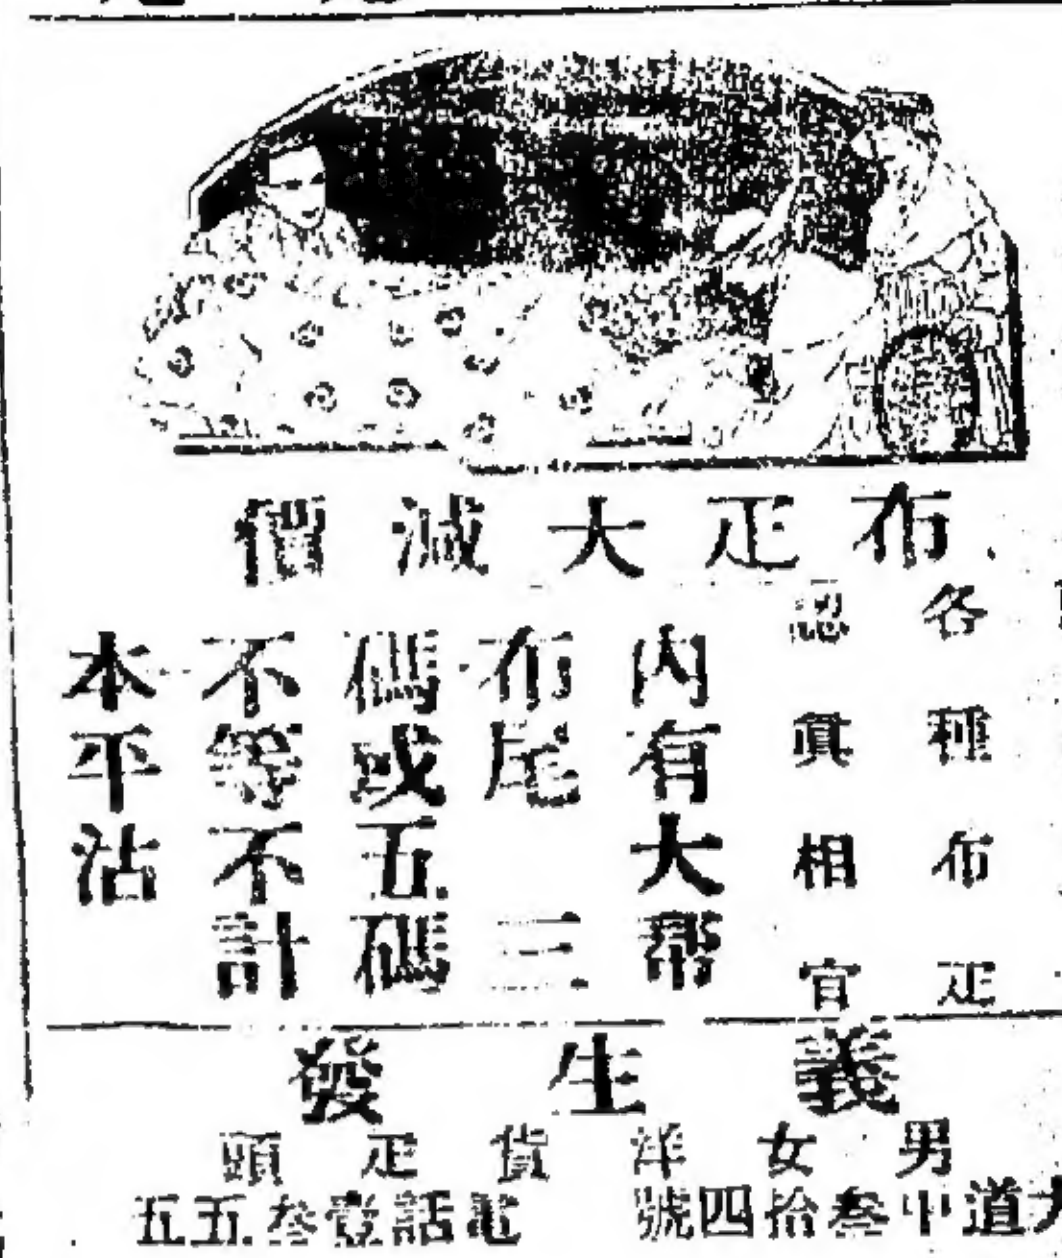 布疋大減價
各種布疋
認真相宜
內有大幫
布尾三
碼或五碼
不等不計
本平沽
義生發
男女洋貨疋頭
大道中叁拾四號 電話壹叁五五